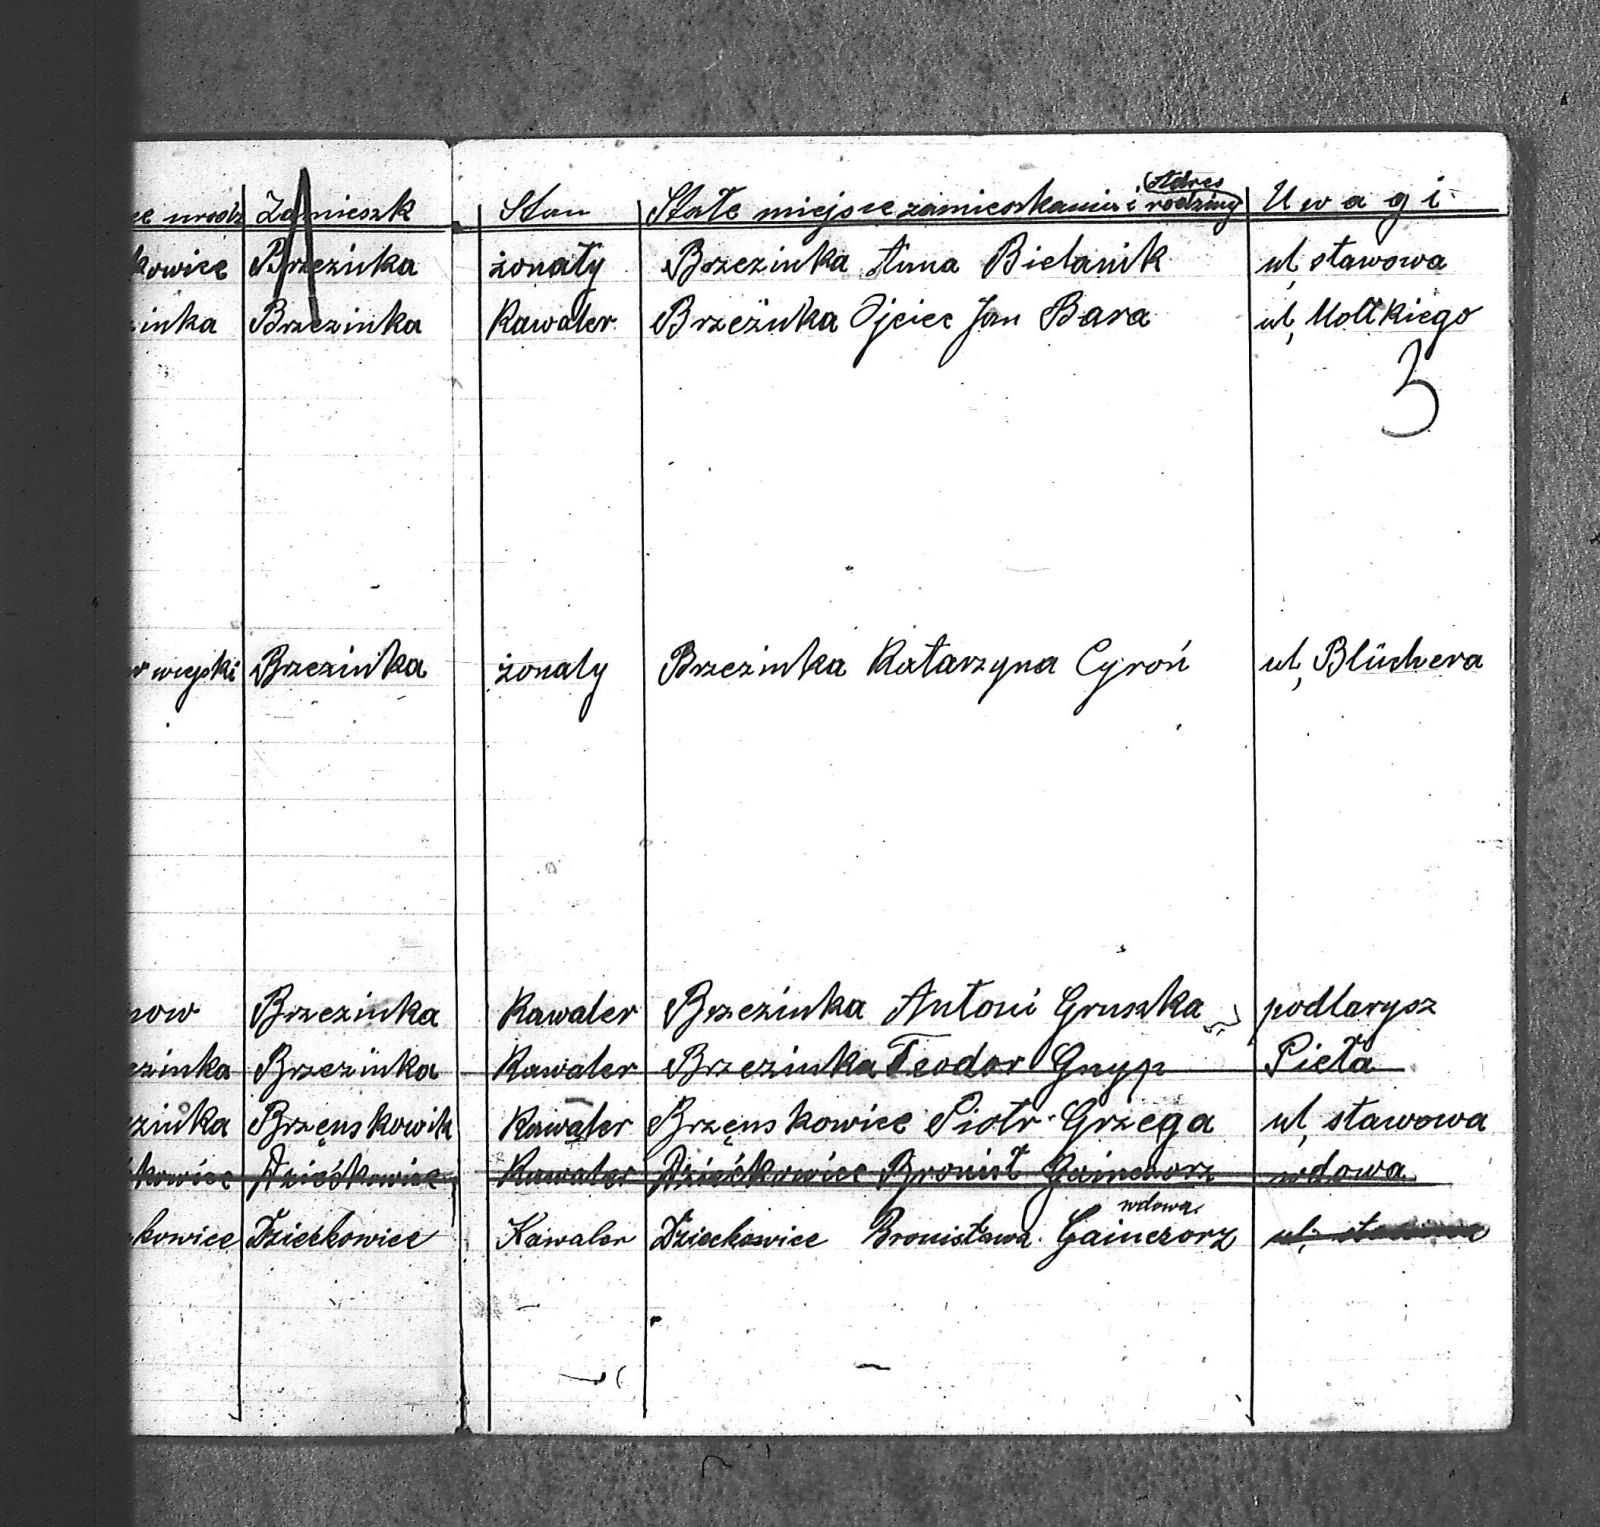 Adres
ce urodz Zamieszk Stan Stałe miejsce zamieszkania i rodziny Uwagi
kowice Brzezinka żonaty Brzezinka Anna Bielanik ul, stawowa
inka Brzezinka Kawaler Brzezinka Ojciec Jan Bara ul, Moltkiego
3
wiejski Brzezinka żonaty Brzezinka Katarzyna Cyroń ul, Blüchera
now Brzezinka Kawaler Brzezinka Antoni Gruszka podlarysz
ezinka Brzezinka Kawaler Brzezinka Teodor Gnyp Pieta
zinka Brzęnskowik Kawaler Brzęnskowice Piotr Grzega ul, stawowa
kowice Dziećkowice Kawaler Dziećkowice Bronist Gainczorz wdowa
wdowa
kowice Dziećkowice Kawaler Dzieckowice Bronisława Gainczorz ul,